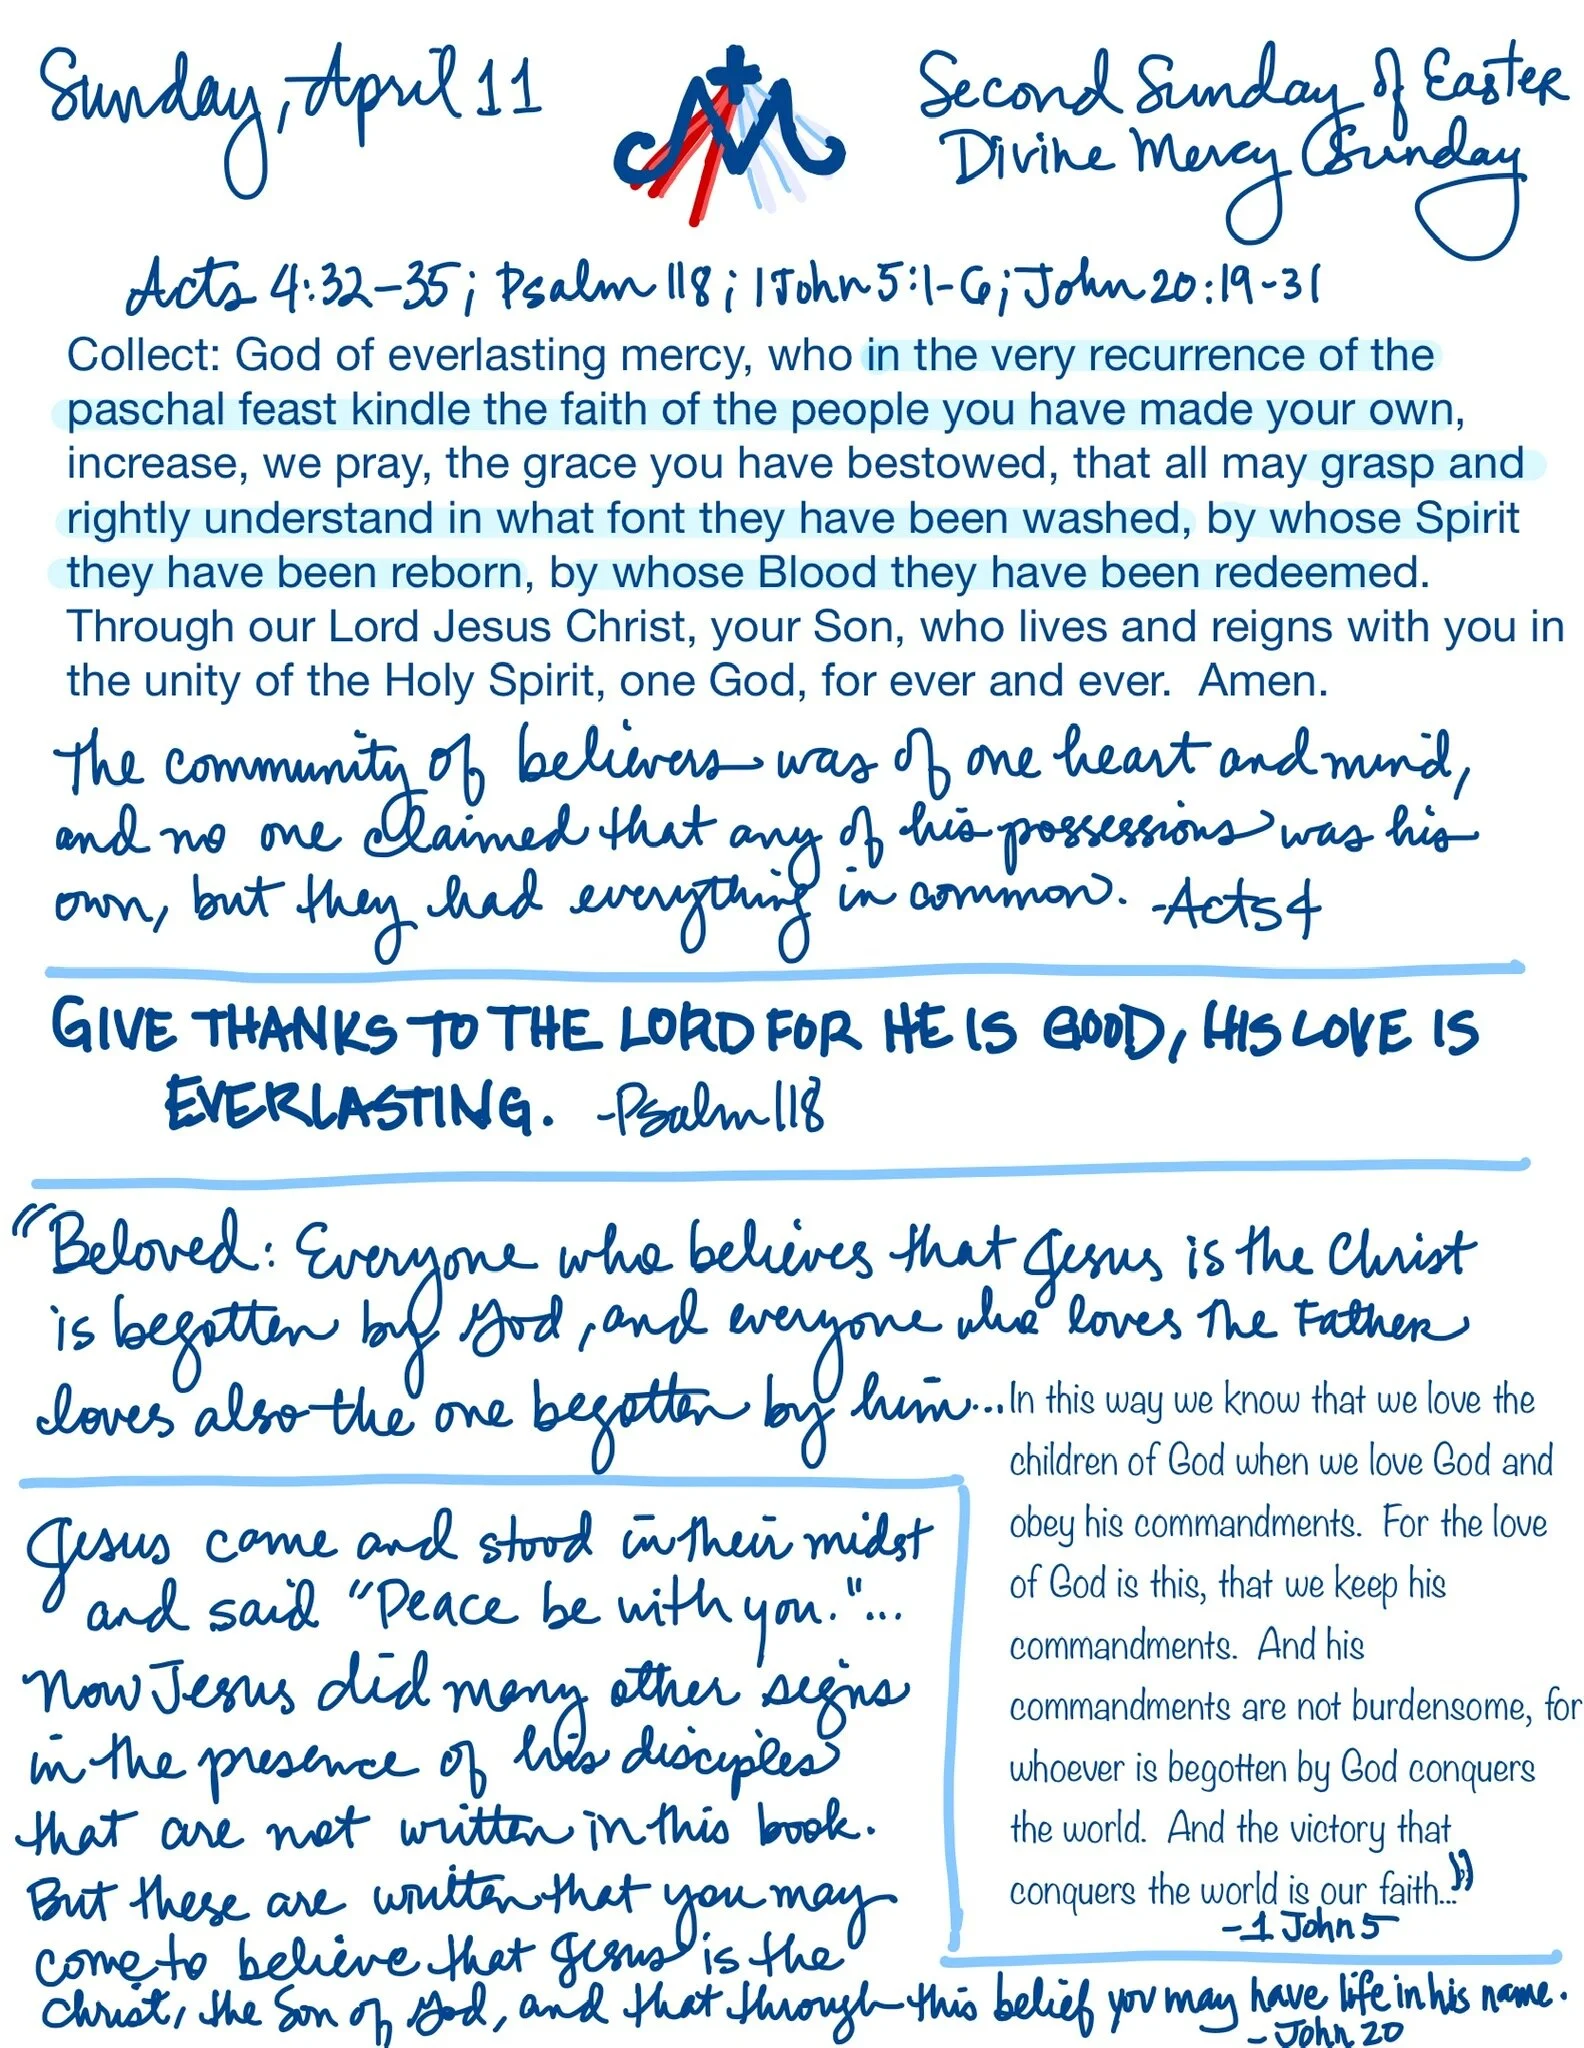 Sunday, April 11
Second Sunday of Easter
Divine Mercy Sunday
Acts 4:32-35; Psalm 118; 1 John 5:1-6; John 20:19-31
Collect: God of everlasting mercy, who in the very recurrence of the
paschal feast kindle the faith of the people you have made your own,
increase, we pray, the grace you have bestowed, that all may grasp and
rightly understand in what font they have been washed, by whose Spirit
they have been reborn, by whose Blood they have been redeemed.
Through our Lord Jesus Christ, your Son, who lives and reigns with you in
the unity of the Holy Spirit, one God, for ever and ever. Amen.
The community of believers was of one heart and mind,
and no one claimed that any of his possessions was his
own, but they had everything in common. -Acts 4
GIVE THANKS TO THE LORD FOR HE IS GOOD, HIS LOVE IS
EVERLASTING. -Psalm 118
"Beloved: Everyone who believes that Jesus is the Christ
is begotten by God, and everyone who loves the Father
loves also the one begotten by him...
In this way we know that we love the
children of God when we love God and
obey his commandments. For the love
of God is this, that we keep his
commandments. And his
commandments are not burdensome, for
whoever is begotten by God conquers
the world. And the victory that
conquers the world is our faith..."
-1 John 5
Jesus came and stood in their midst
and said "Peace be with you."...
Now Jesus did many other signs
in the presence of his disciples
that are not written in this book.
But these are written that you may
come to believe that Jesus is the
Christ, the Son of God, and that through this belief you may have life in his name.
- John 20